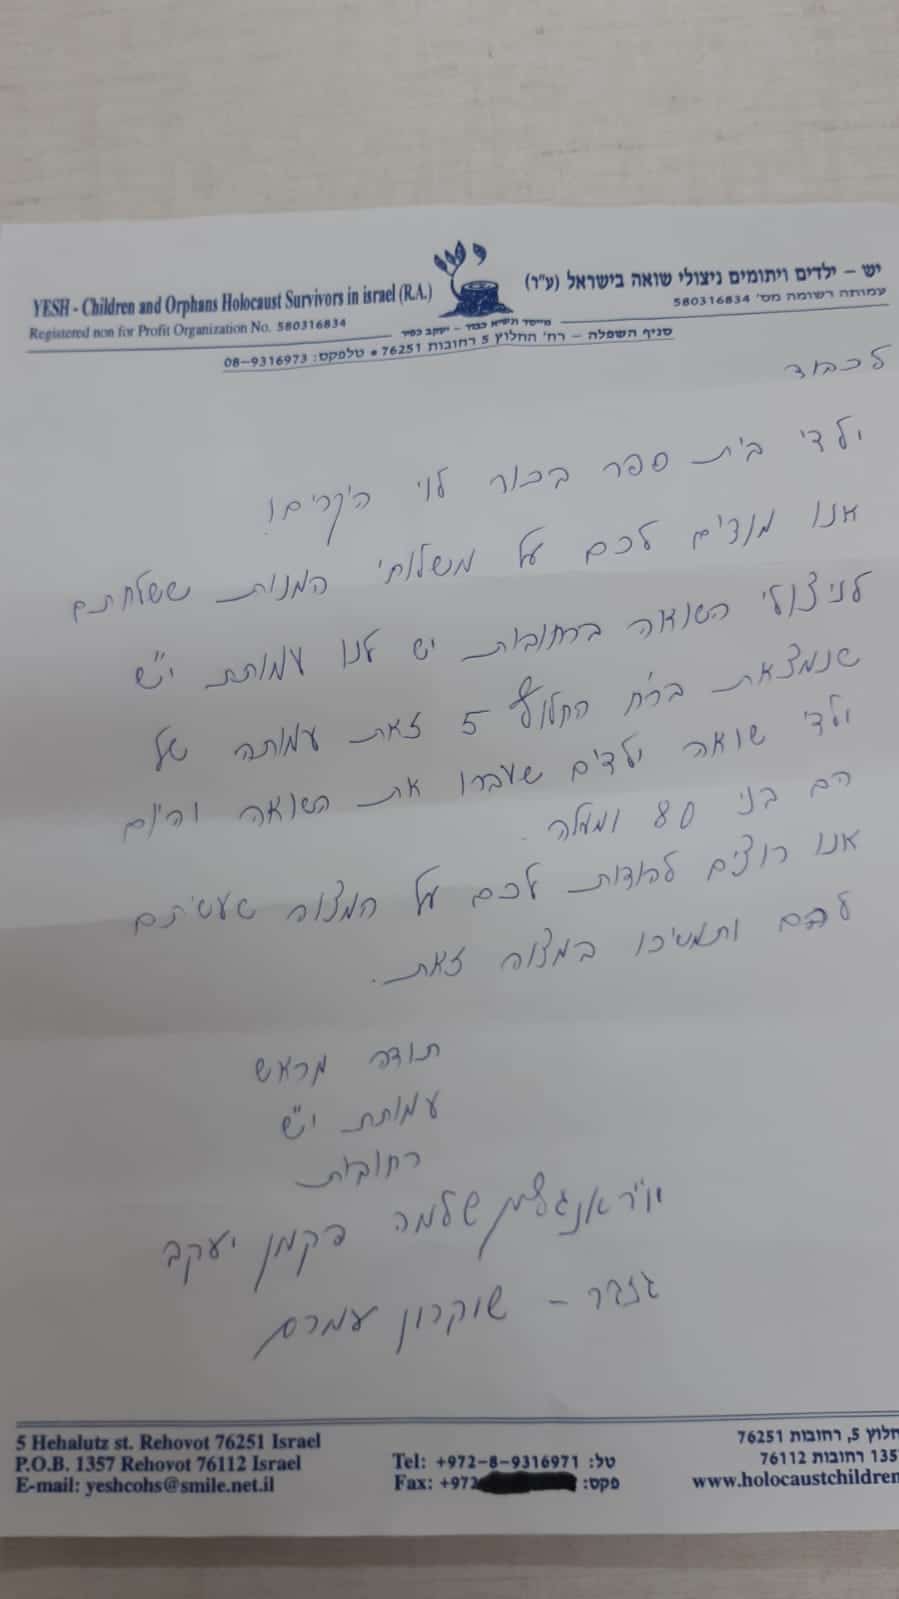 יש – ילדים ויתומים ניצולי שואה בישראל (ע"ר)
עמותה רשומה מס' 580316834
YESH - Children and Orphans Holocaust Survivors in israel (R.A.)
Registered non for Profit Organization No. 580316834
מייסד ונשיא כבוד – יעקב כפיר
סניף השפלה – רח' החלוץ 5 רחובות 76251 • טלפקס: 08-9316973
לכבוד
ילדי בית ספר בכור לוי היקרים!
אנו מודים לכם על משלוחי המנות ששלחתם
לניצולי השואה ברחובות יש לנו עמותת י"ש
שנמצאת ברח החלוץ 5 זאת עמותה של
ילדי שואה ילדים שעברו את השואה והיום
הם בני 80 ומעלה.
אנו רוצים להודות לכם על המצווה שעשיתם
להם ותמשיכו במצווה זאת.
תודה מראש
עמותת י"ש
רחובות
יו"ר שלמה יעקב
גזבר – שוקרון עמרם
5 Hehalutz st. Rehovot 76251 Israel
P.O.B. 1357 Rehovot 76112 Israel
E-mail: yeshcohs@smile.net.il
Tel: +972-8-9316971 טל:
Fax: +972 פקס:
חלוץ 5, רחובות 76251
135 רחובות 76112
www.holocaustchildren